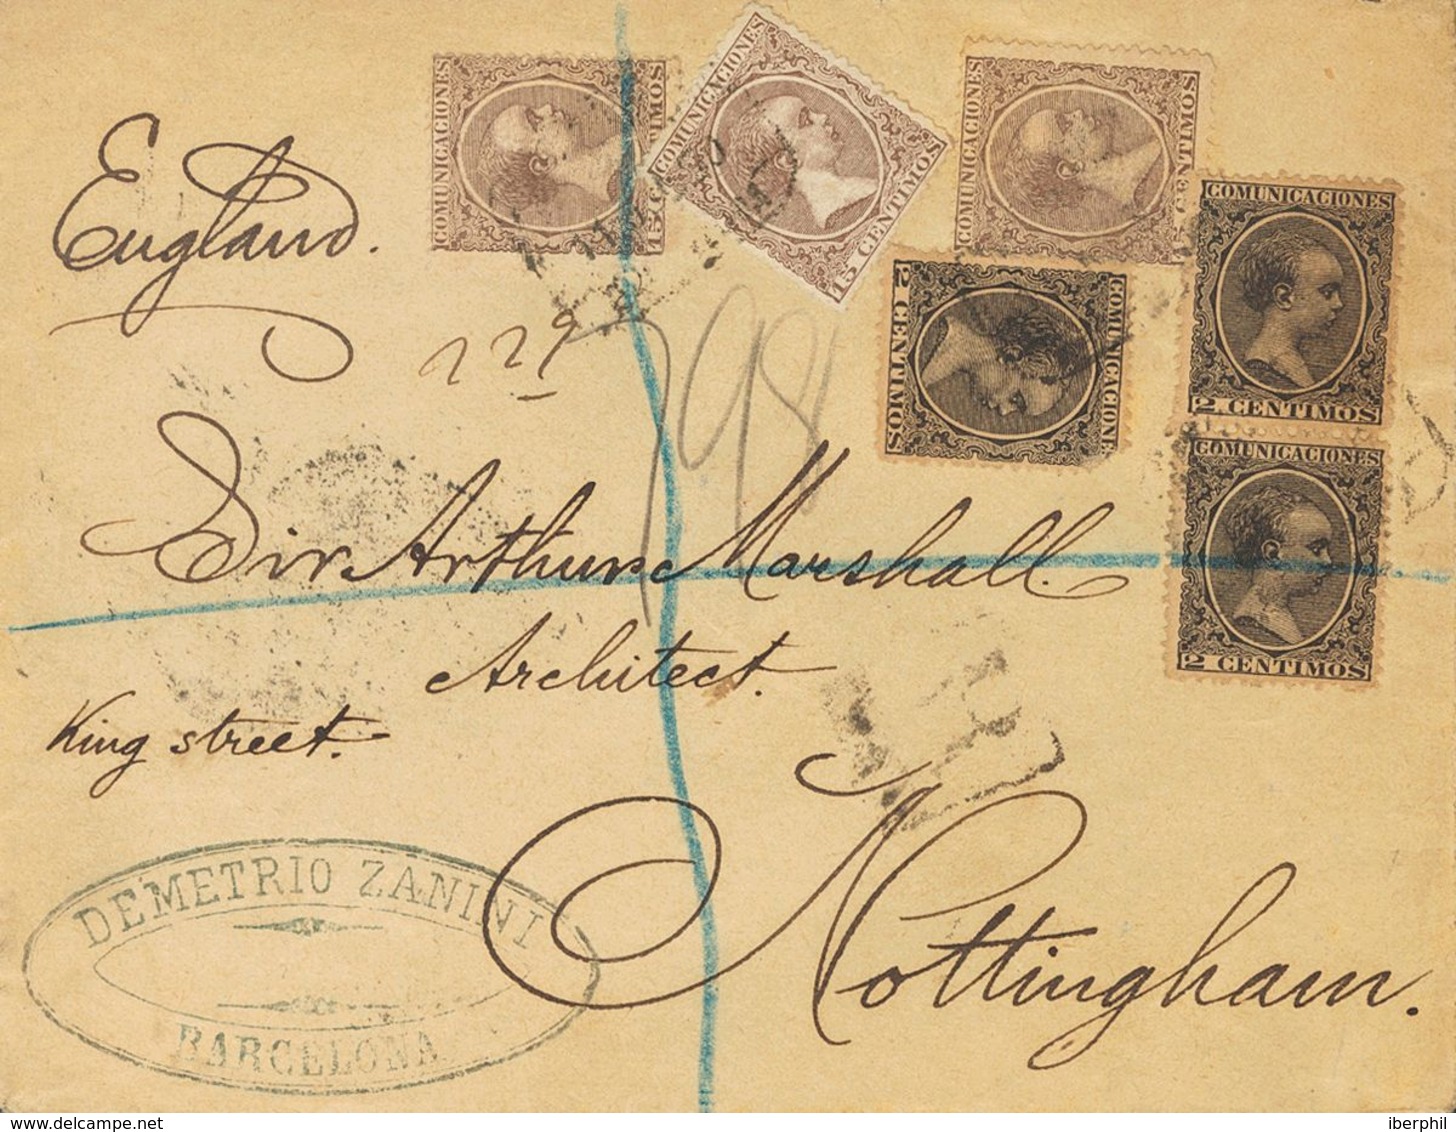 COMUNICACIONES
15 C TIMOS
COMUNICACIONES
15 CENTIMOS
COMUNICACIONES
CENTIMOS
COMUNICACIONES
2 CENTIMOS
COMUNICACIONE
2 CENTIMOS
COMUNICACIONES
2 CENTIMOS
England.
229
798
Sir Arthur Marshall.
Architect.
King street.
Nottingham.
DEMETRIO ZANINI
BARCELONA
www.delcampe.net
iberphil